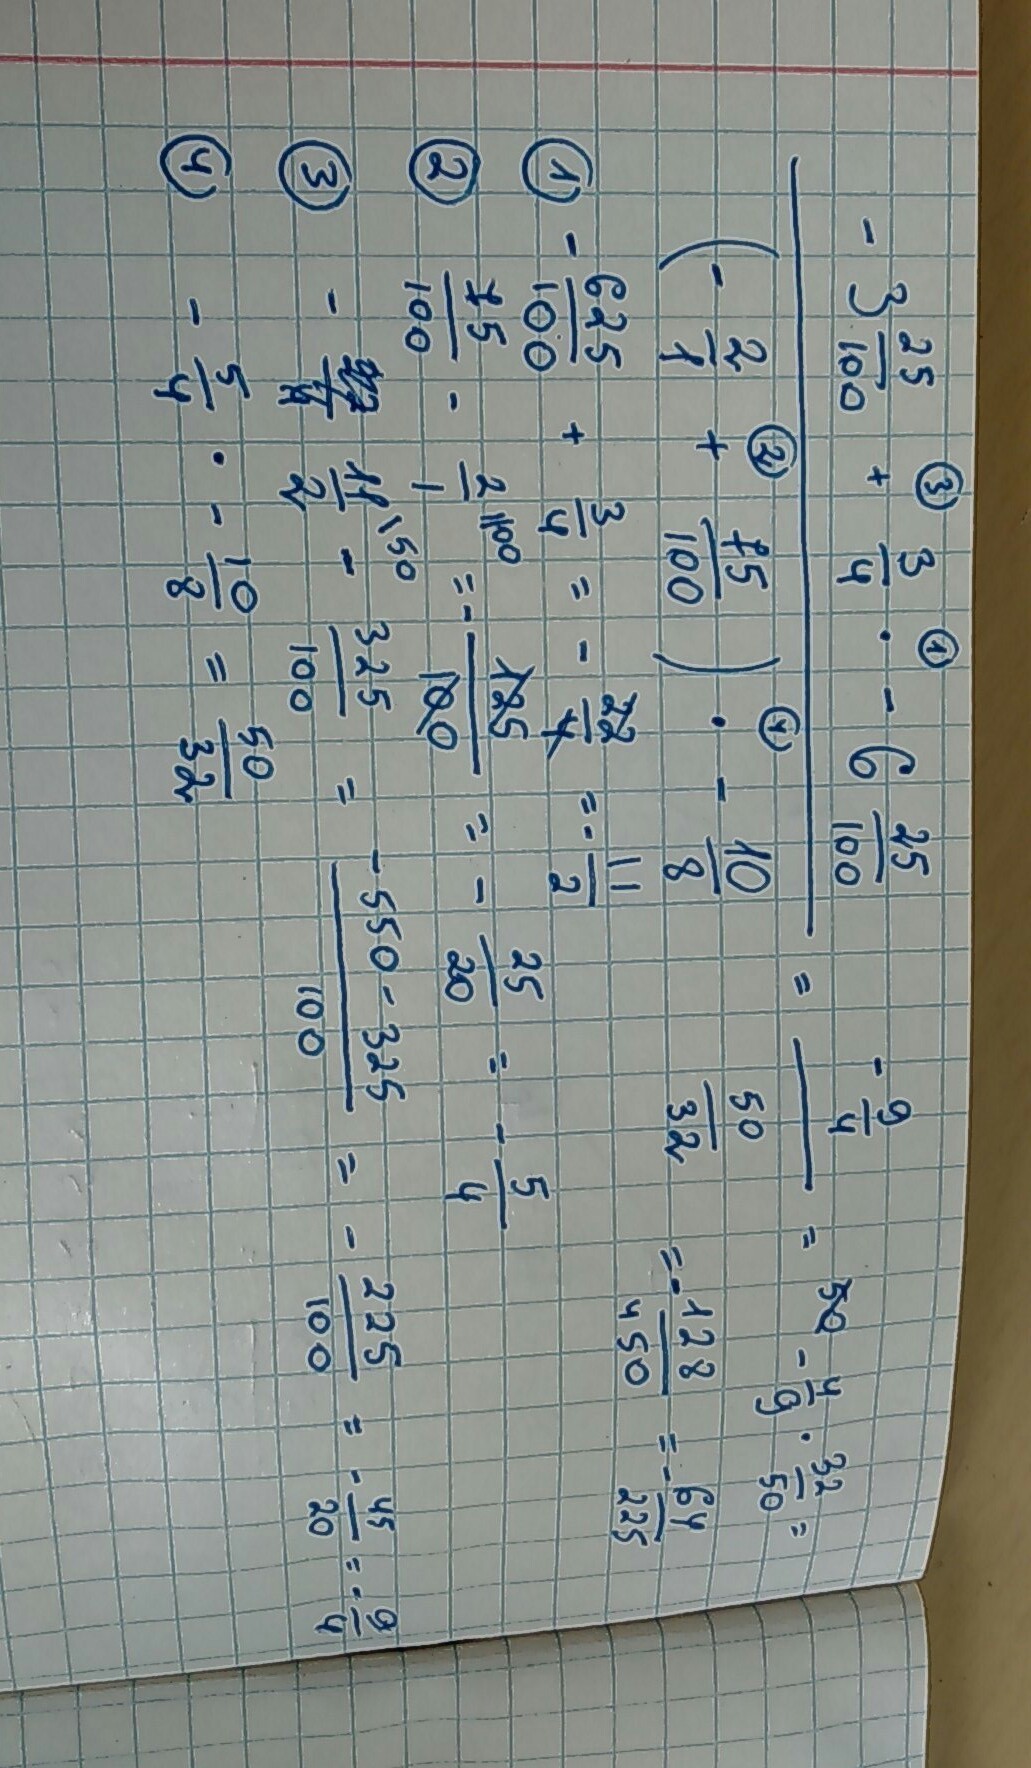 - 3 25/100 + ③ 3/4 · ① - 6 25/100
(- 2/1 + ② 75/100) · ④ - 10/8
= - 9/4 / 50/32 = - 4/9 · 32/50 =
= - 128/450 = - 64/225
① - 625/100 + 3/4 = - 22/4 = - 11/2
② 75/100 - 2/1 \100 = - 125/100 = - 25/20 = - 5/4
③ - 11/2 \50 - 325/100 = - 550 - 325/100 = - 225/100 = - 45/20 = - 9/4
④ - 5/4 · - 10/8 = 50/32